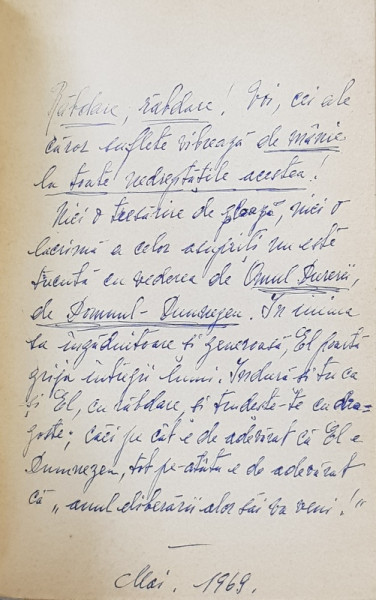 Răbdare, răbdare! Voi, cei ale
căror suflete vibrează de mânie
la toate nedreptățile acestea!
Nici o tresărire de groază, nici o
lacrimă a celor asupriți nu este
trecută cu vederea de Omul Durerii,
de Domnul-Dumnezeu. In inima
sa îngăduitoare și generoasă, El poartă
grija întregii lumi. Indură și tu ca
și El, cu răbdare, și trudește-te cu dra=
goste; căci pe cât e de adevărat că El e
Dumnezeu, tot pe-atâta e de adevărat
că „anul eliberării alor săi va veni!"
Mai. 1969.